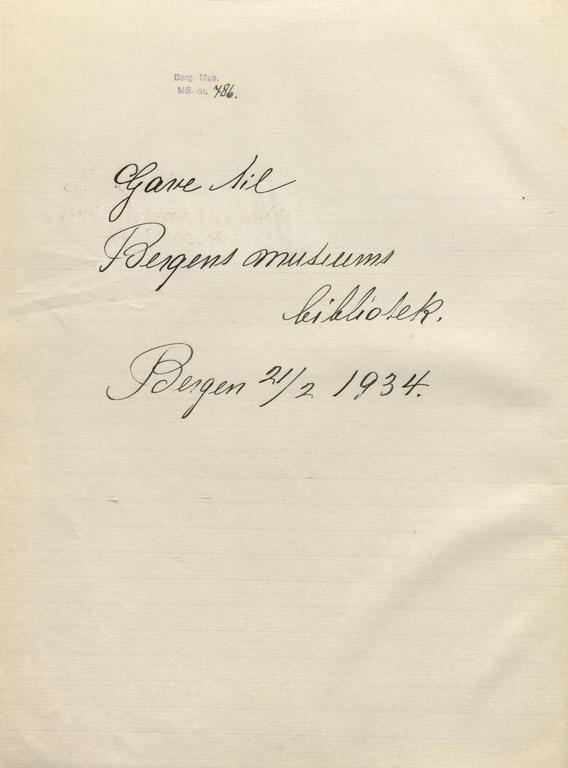 Berg. Mus.
MS. nr. 786.
Gave til
Bergens museums
bibliotek.
Bergen 21/2 1934.